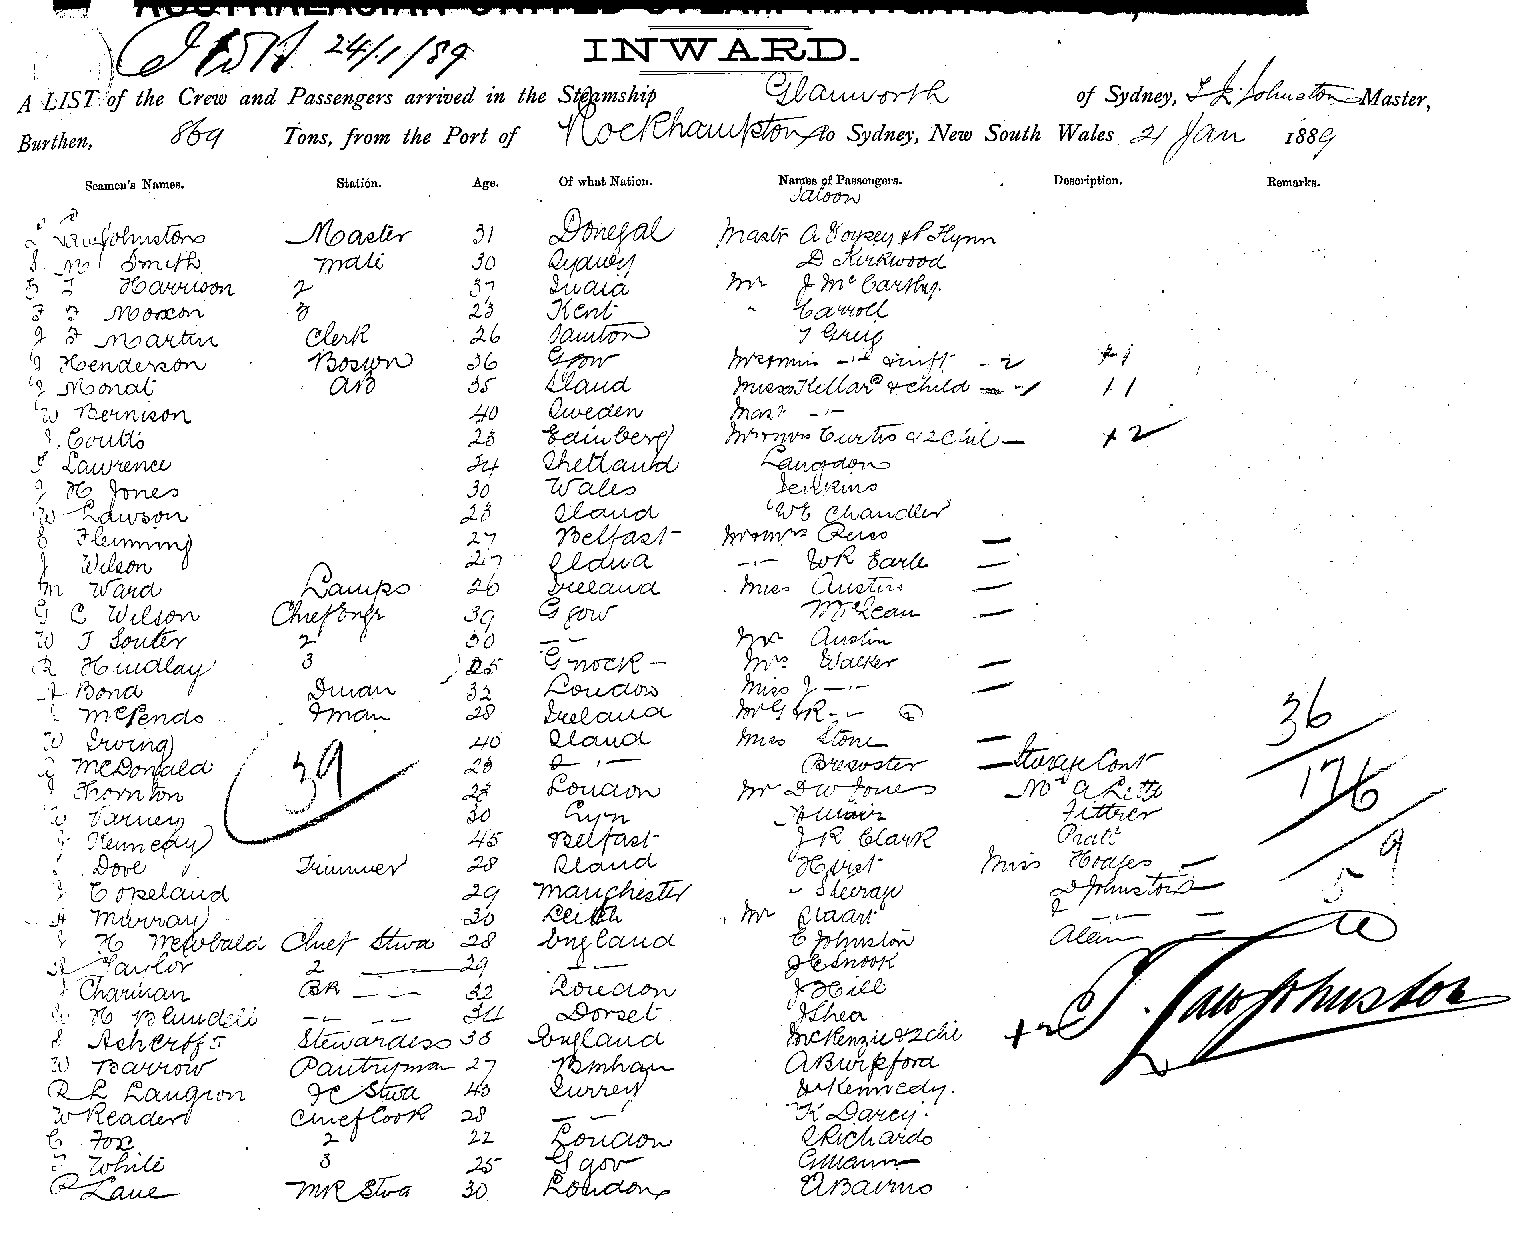 24/1/89
INWARD.
A LIST of the Crew and Passengers arrived in the Steamship Glanworth of Sydney, Johnston Master,
Burthen, 869 Tons, from the Port of Rockhampton to Sydney, New South Wales 21 Jan 1889
Seamen's Names. Station. Age. Of what Nation. Names of Passengers. Description. Remarks.
Saloon
Law Johnston Master 31 Donegal Mastr A & P Flynn
Smith Mate 30 Sydney D Kirkwood
Harrison 2 37 India Mr J McCarthy
Moxon 3 23 Kent " Carroll
Martin Clerk 26 Taunton T Greig
Henderson Bosun 36 Ggow - 2 + 1
J Monat AB 35 Sland & child 11
W Bernison 40 Sweden Mast -"-
J. Coutts 28 Edinberg Curtis & 2 Chil - + 2
Lawrence 34 Shetland Langdon
J H Jones 30 Wales Jenkins
W Lawson 28 Sland WE Chandler
Flemming 27 Belfast
J Wilson 27 Sland -"- WR Earle -
M Ward Lamps 26 Ireland Miss Austin -
G C Wilson Chief Engr 39 Ggow McLean -
W T Souter 2 30 -"- Mr Austin
R Hindlay 3 25 Gnock - Mrs Walker -
A Bond Dman 32 London Miss J -"- -
Fman 28 Ireland Mr G & R -"-
W Irving 40 Sland Miss Stone -
39
36
McDonald 28 Brewster - Steerage Cont
J Thornton 28 London Mr DW Jones
176
W Varney 30 A Muir Fittrer
J Kennedy 45 Belfast J R Clark Pratt
Dove Trimmer 28 Sland Hurst Miss Hodges -
9
J Copeland 29 Manchester Steerage D Johnston -
5
A Murray 30 Leith Mr Stuart J -"- -
J H Newbald Chief Stwd 28 England E Johnston -
Taylor 2 -"- 29 -"- J C Snook
J Charman BR -"- 32 London J Hill
H Blundell -"- -"- 34 Dorset J Shea
S Ashcroft Stewardess 38 England McKenzie & 2 chi + 2
T. Law Johnston
W Barrow Pantryman 27 Bmham A Burpford
R L Langron FC Stwd 40 Surrey Kennedy.
W Reader Chief Cook 28 -"- K Darcy.
C Fox 2 22 London Richards
J White 3 25 Ggow G Mann
R Lane MR Stwd 30 London A Bairns